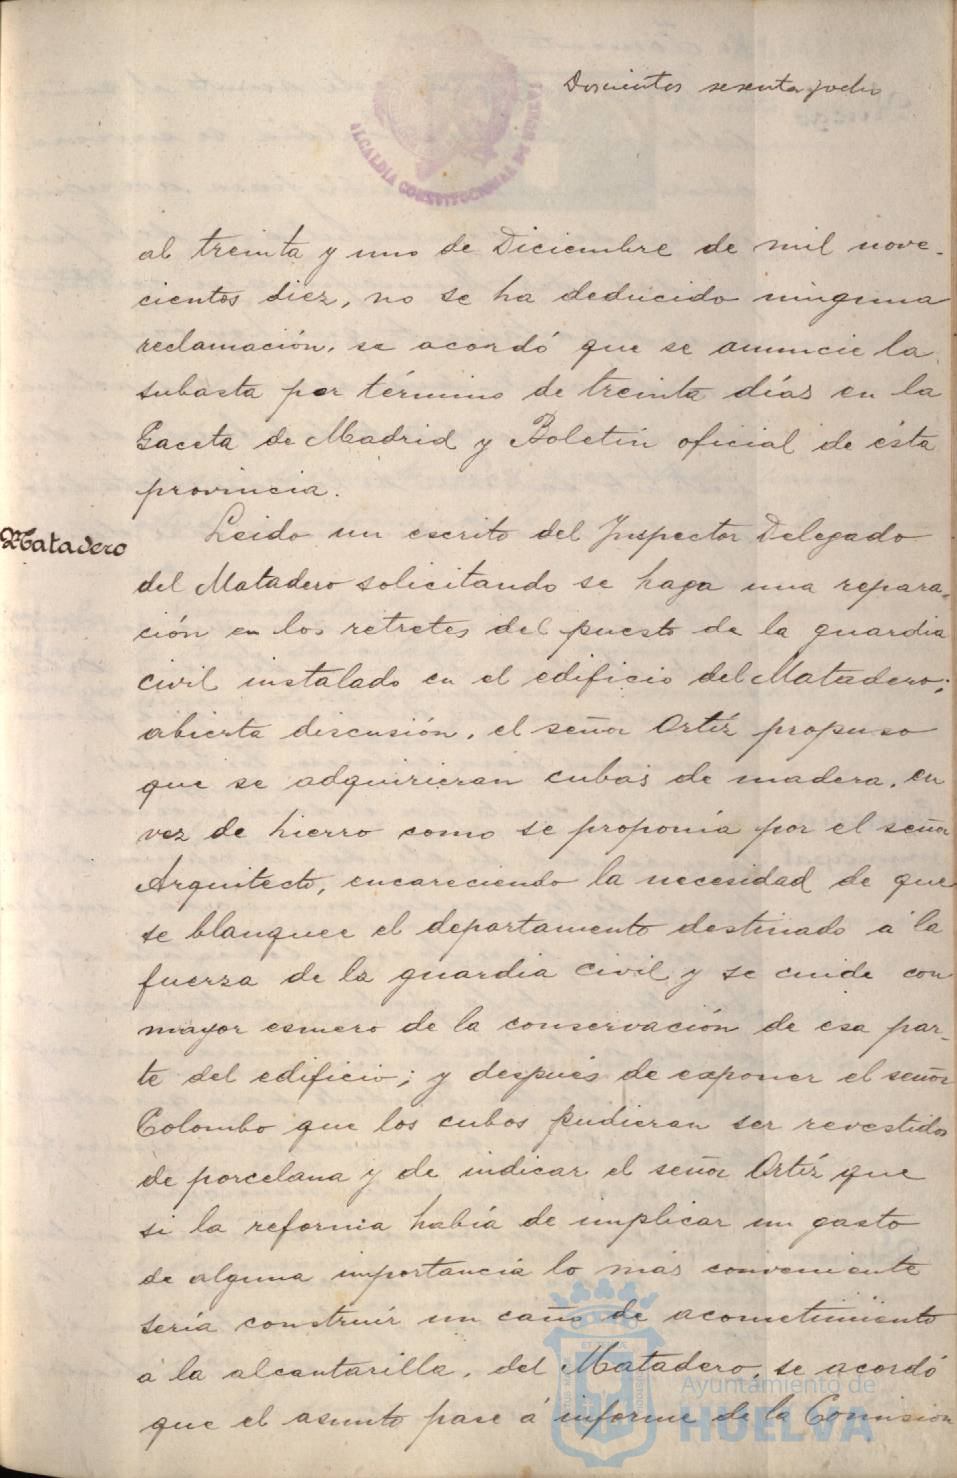 Doscientos sesenta y ocho
ALCALDIA CONSTITUCIONAL DE HUELVA
al treinta y uno de Diciembre de mil nove-
cientos diez, no se ha deducido ninguna
reclamación, se acordó que se anuncie la
subasta por término de treinta días en la
Gaceta de Madrid y Boletín oficial de ésta
provincia.
Matadero
Leido un escrito del Inspector Delegado
del Matadero solicitando se haga una repara-
ción en los retretes del puesto de la guardia
civil instalado en el edificio del Matadero;
abierta discusión, el señor Ortíz propuso
que se adquirieran cubas de madera, en
vez de hierro como se proponía por el señor
Arquitecto, encareciendo la necesidad de que
se blanquee el departamento destinado á la
fuerza de la guardia civil y se cuide con
mayor esmero de la conservación de esa par-
te del edificio; y después de exponer el señor
Colombo que los cubos pudieran ser revestidos
de porcelana y de indicar el señor Ortíz que
si la reforma había de implicar un gasto
de alguna importancia lo más conveniente
sería construír un caño de acometimiento
á la alcantarilla, del Matadero, se acordó
que el asunto pase á informe de la Comisión
Ayuntamiento de
HUELVA